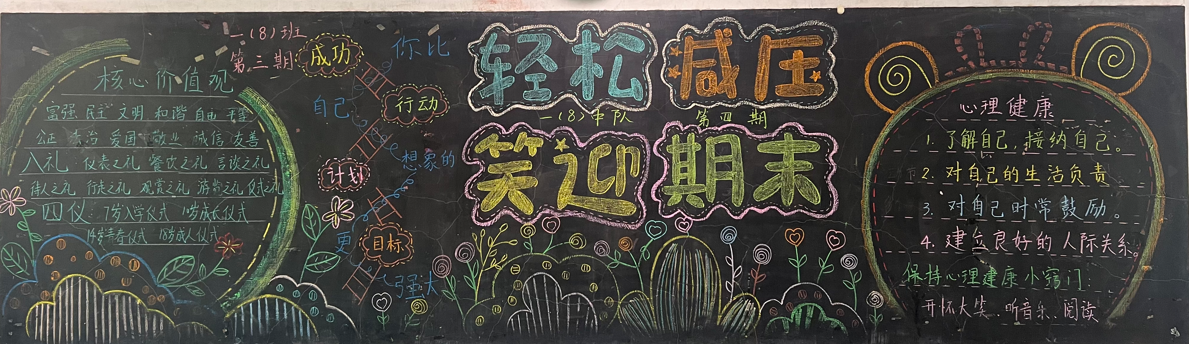 一(8)班
第三期
核心价值观
富强 民主 文明 和谐 自由 平等
公正 法治 爱国 敬业 诚信 友善
八礼 仪表之礼 餐饮之礼 言谈之礼
待人之礼 行走之礼 观赏之礼 游览之礼 仪式之礼
四仪：7岁入学仪式 10岁成长仪式
14岁青春仪式 18岁成人仪式
成功
行动
计划
目标
你比
自己
想象的
更
强大
轻松 减压
一(8)中队 第四期
笑迎 期末
心理健康
1. 了解自己，接纳自己。
2. 对自己的生活负责
3. 对自己时常鼓励。
4. 建立良好的人际关系。
保持心理健康小窍门：
开怀大笑、听音乐、阅读